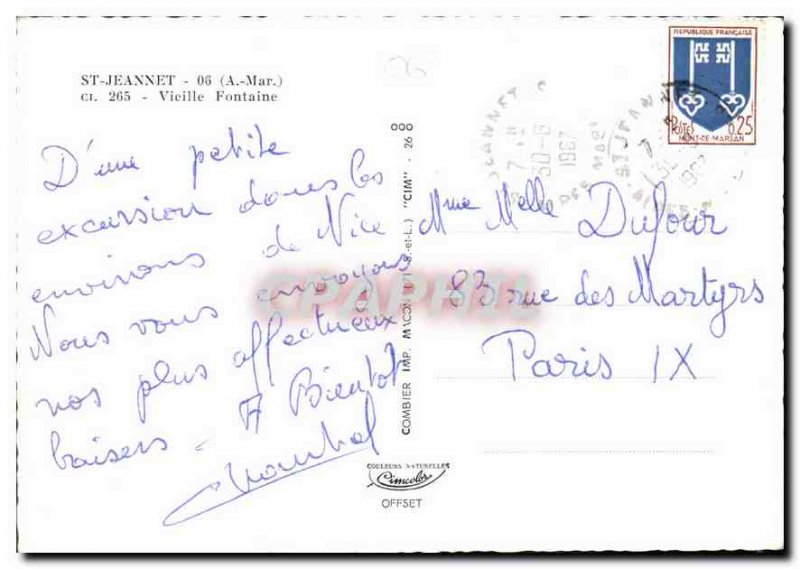 ST-JEANNET - 06 (A.-Mar.)
CI. 265 - Vieille Fontaine
D'une petite
excursion dans les
environs de Nice
Nous vous envoyons
nos plus affectueux
baisers - A Bientot
COMBIER IMP. MACON "CIM"
COULEURS NATURELLES
Cimcolor
OFFSET
REPUBLIQUE FRANÇAISE
POSTES 0,25
MONT-DE-MARSAN
ST JEANNET
30-6
1967
Mme Melle Dufour
83 rue des Martyrs
Paris IX
CPAPHIL